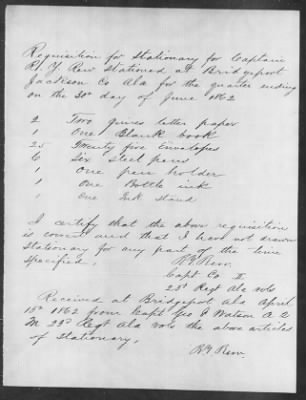 Requisition for Stationary for Captain
R. Y. Rew Stationed at Bridgeport
Jackson Co Ala for the quarter ending
on the 30th day of June 1862
2 Two quires letter paper
1 One Blank book
25 Twenty five Envelopes
6 Six steel pens
1 One pen holder
1 One Bottle ink
1 One Ink stand
I certify that the above requisition
is correct and that I have not drawn
Stationary for any part of the time
specified.
R Y Rew.
Capt Co
23d Regt Ala vols
Received at Bridgeport Ala April
15th 1862 from Capt Geo J Watson A. Q
M 23d Regt Ala vols the above articles
of Stationary.
R Y Rew.